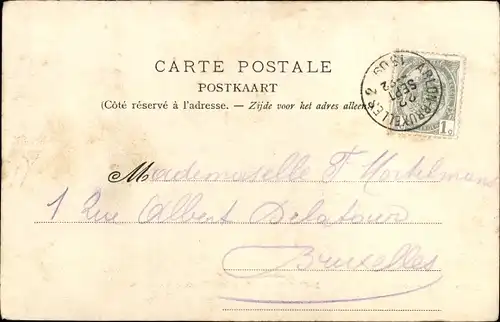 CARTE POSTALE
POSTKAART
(Côté réservé à l'adresse. — Zijde voor het adres alleen
Mademoiselle F. Mortelmans
1 Rue Albert Delatour
Bruxelles
1 c
BRUXELLES 2
22
SEPT